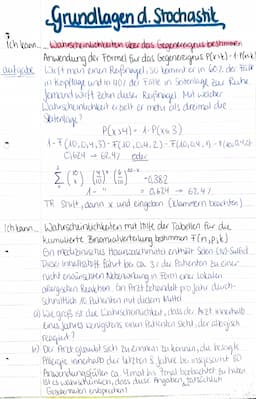 Grundlagen d. Stochastik
Ich kann... Wahrscheinlichkeiten über das Gegenereignis bestimmen
Anwendung der Formel für das Gegenereignis P(x>k) = 1-P(x≤k)
Aufgabe Wirft man einen Reißnagel, so kommt er in 60% der Fälle
in Kopflage und in 40% der Fälle in Seitenlage zur Ruhe.
Jemand wirft zehn dieser Reißnägel. Mit welcher
Wahrscheinlichkeit erhält er mehr als dreimal die
Seitenlage?
P(x>4) = 1-P(x≤3)
0,624 → 62,4% oder
= 0,382
1 - " = 0,624 → 62,4%
TR Shift, dann x und eingeben (Klammern beachten)
Ich kann... Wahrscheinlichkeiten mit Hilfe der Tabellen für die
kumulierte Binomialverteilung bestimmen F(n,p,k)
Ein medizinisches Haarwaschmittel enthält Selen-(IV)-Sulfid.
Dieser Inhaltsstoff führt bei ca. 3% der Patienten zu einer
nicht erwünschten Nebenwirkung in Form einer lokalen
allergischen Reaktion. Ein Arzt behandelt pro Jahr durch-
schnittlich 15 Patienten mit diesem Mittel
a) Wie groß ist die Wahrscheinlichkeit, dass der Arzt innerhalb
eines Jahres wenigstens einen Patienten sieht, der allergisch
reagiert?
b) Der Arzt glaubt sich zu erinnern zu können, die besagte
Allergie innerhalb der letzten Jahre bei insgesamt 80
Anwendungsfällen ca. 4 mal bis 7 mal beobachtet zu haben.
Ist es wahrscheinlich, dass diese Angaben tatsächlich
Gegebenheiten entsprechen?